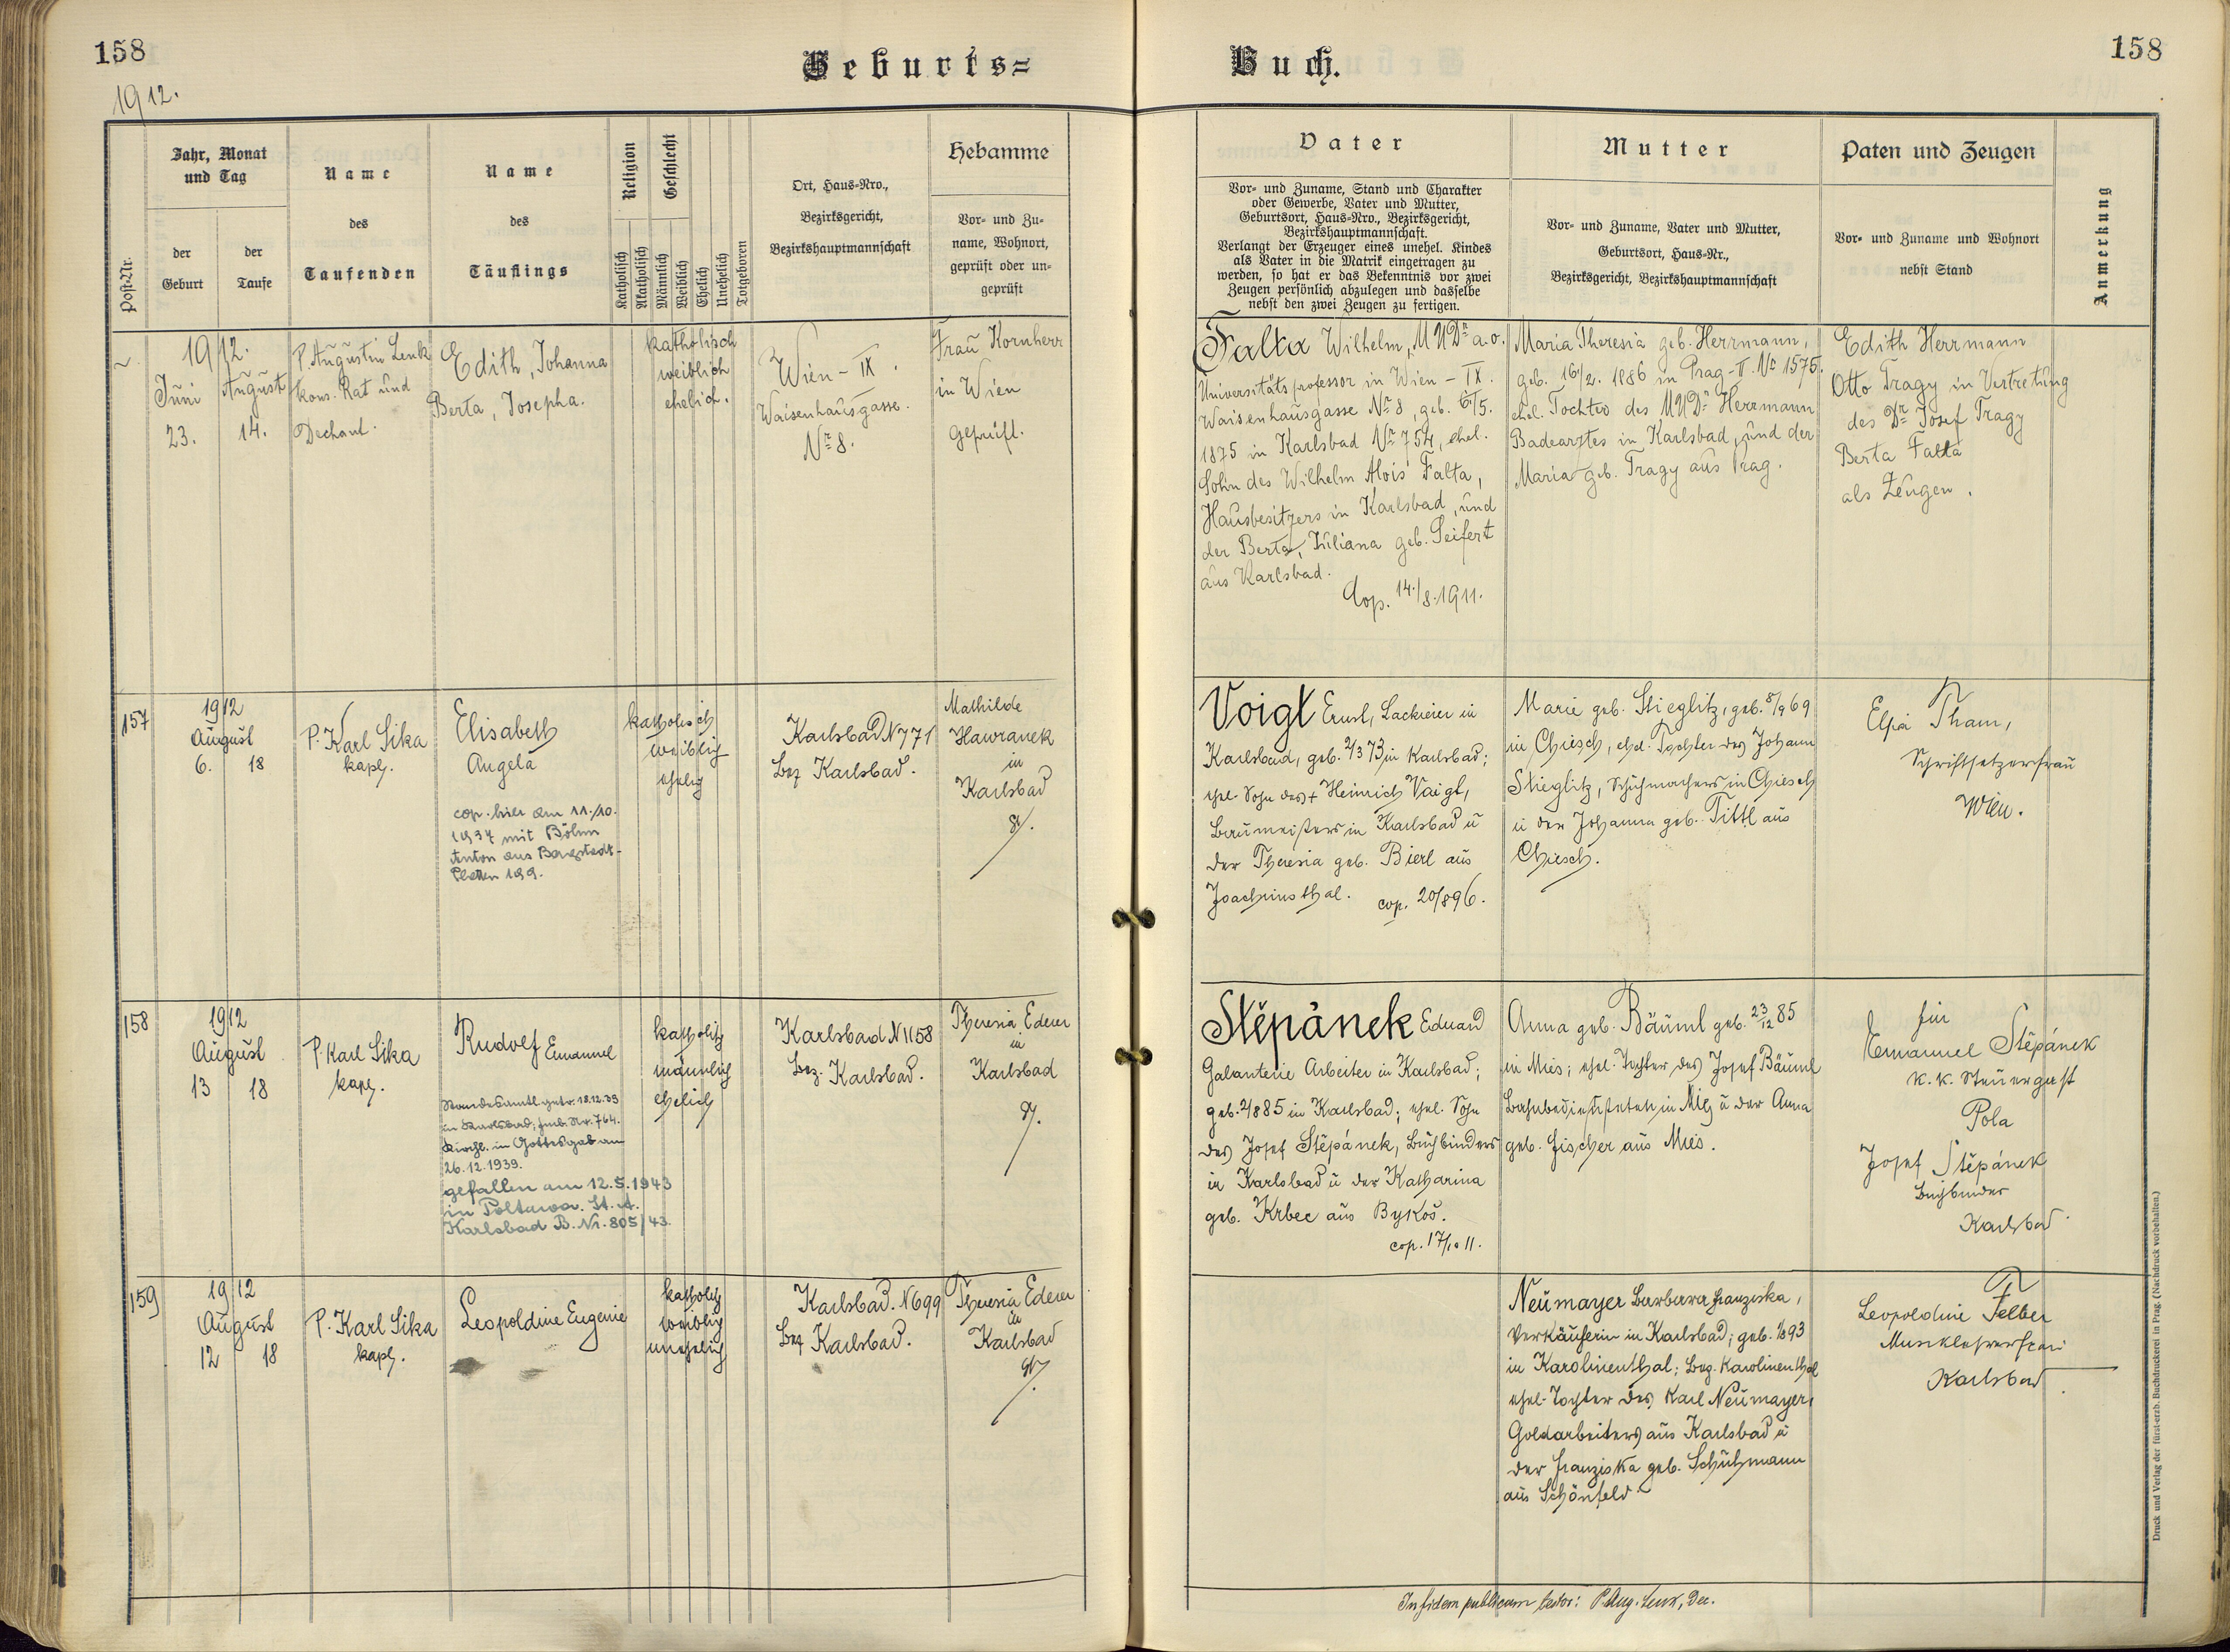 158
Geburts=
Buch.
158
1912.
Post-Nr.
Jahr, Monat
und Tag
der
Geburt
der
Taufe
Name
des
Taufenden
Name
des
Täuflings
Religion
Katholisch
Akatholisch
Geschlecht
Männlich
Weiblich
Ehelich
Unehelich
Totgeboren
Ort, Haus-Nro.,
Bezirksgericht,
Bezirkshauptmannschaft
Hebamme
Vor- und Zu-
name, Wohnort,
geprüft oder un-
geprüft
Vater
Vor- und Zuname, Stand und Charakter
oder Gewerbe, Vater und Mutter,
Geburtsort, Haus-Nro., Bezirksgericht,
Bezirkshauptmannschaft.
Verlangt der Erzeuger eines unehel. Kindes
als Vater in die Matrik eingetragen zu
werden, so hat er das Bekenntnis vor zwei
Zeugen persönlich abzulegen und dasselbe
nebst den zwei Zeugen zu fertigen.
Mutter
Vor- und Zuname, Vater und Mutter,
Geburtsort, Haus-Nr.,
Bezirksgericht, Bezirkshauptmannschaft
Paten und Zeugen
Vor- und Zuname und Wohnort
nebst Stand
Anmerkung
1912.
Juni August
23. 14.
P. Augustin Lenk
kons. Rat und
Dechant.
Edith, Johanna
Berta, Josepha.
katholisch
weiblich
ehelich.
Wien - IX.
Waisenhausgasse.
Nr 8.
Frau Kornherr
in Wien
geprüft.
Falta Wilhelm, MUDr a.o.
Universitätsprofessor in Wien - IX.
Waisenhausgasse Nr 8, geb. 6/5.
1875 in Karlsbad Nr 754, ehel.
Sohn des Wilhelm Alois Falta,
Hausbesitzers in Karlsbad, und
der Berta, Juliana geb. Seifert
aus Karlsbad.
Cop. 14./8.1911.
Maria Theresia geb. Herrmann,
geb. 16/2. 1886 in Prag-II. Nr 1575.
ehel. Tochter des MUDr Herrmann
Badearztes in Karlsbad, und der
Maria geb. Tragy aus Prag.
Edith Herrmann
Otto Tragy in Vertretung
des Dr Josef Tragy
Berta Falta
als Zeugen.
157
1912
August
6. 18
P. Karl Sika
kapl.
Elisabeth
Angela
cop. hier am 11./10.
1937 mit Böhm
Anton aus Bergstadt-
Platten 199.
katholisch
weiblich
ehelich
Karlsbad N 771
Bez Karlsbad.
Mathilde
Hawranek
in
Karlsbad
gp.
Voigt Ernst, Lackierer in
Karlsbad, geb. 2/3 73 in Karlsbad;
ehel. Sohn des + Heinrich Voigt,
Baumeisters in Karlsbad u
der Theresia geb. Bierl aus
Joachimsthal. cop. 20/8 96.
Marie geb. Stieglitz, geb. 8/9 69
in Chiesch, ehel. Tochter des Johann
Stieglitz, Schuhmachers in Chiesch
u der Johanna geb. Tittl aus
Chiesch.
Elsa Tham,
Schriftsetzersfrau
Wien.
158
1912
August
13 18
P. Karl Sika
kapl.
Rudolf Emanuel
Standesamtl. getr. 18.12.39
in Karlsbad, Fmb. Nr. 764.
Kirchl. in Gottesgab am
26.12.1939.
gefallen am 12.5.1943
in Poltawa. St. A.
Karlsbad B. Nr. 805/43.
katholich
männlich
ehelich
Karlsbad N 1158
Bez. Karlsbad.
Theresia Ederer
in
Karlsbad
gp.
Stěpánek Eduard
Galanterie Arbeiter in Karlsbad;
geb. 2/8 85 in Karlsbad; ehel. Sohn
des Josef Stěpánek, Buchbinders
in Karlsbad u der Katharina
geb. Krbec aus Bykoš.
cop. 17/10 11.
Anna geb. Bäuml geb. 23/12 85
in Mies; ehel. Tochter des Josef Bäuml
Bahnbediensteten in Mies u der Anna
geb. Fischer aus Mies.
für
Emanuel Stěpánek
K. K. Steuergast
Pola
Josef Stěpánek
Buchbinder
Karlsbad
159
1912
August
12 18
P. Karl Sika
kapl.
Leopoldine Eugenie
katholich
weiblich
unehelich
Karlsbad. N 699
Bez Karlsbad.
Theresia Ederer
in
Karlsbad
gp.
Neumayer Barbara Franziska,
Verkäuferin in Karlsbad; geb. 93
in Karolinenthal; Bez. Karolinenthal
ehel. Tochter des Karl Neumayer,
Goldarbeiters aus Karlsbad u
der Franziska geb. Schuhmann
aus Schönfeld
Leopoldine Felber
Musiklehrersfrau
Karlsbad.
In fidem publicam testor: P. Aug. Lenk, Dec.
Druck und Verlag der fürst-erzb. Buchdruckerei in Prag. (Nachdruck vorbehalten.)